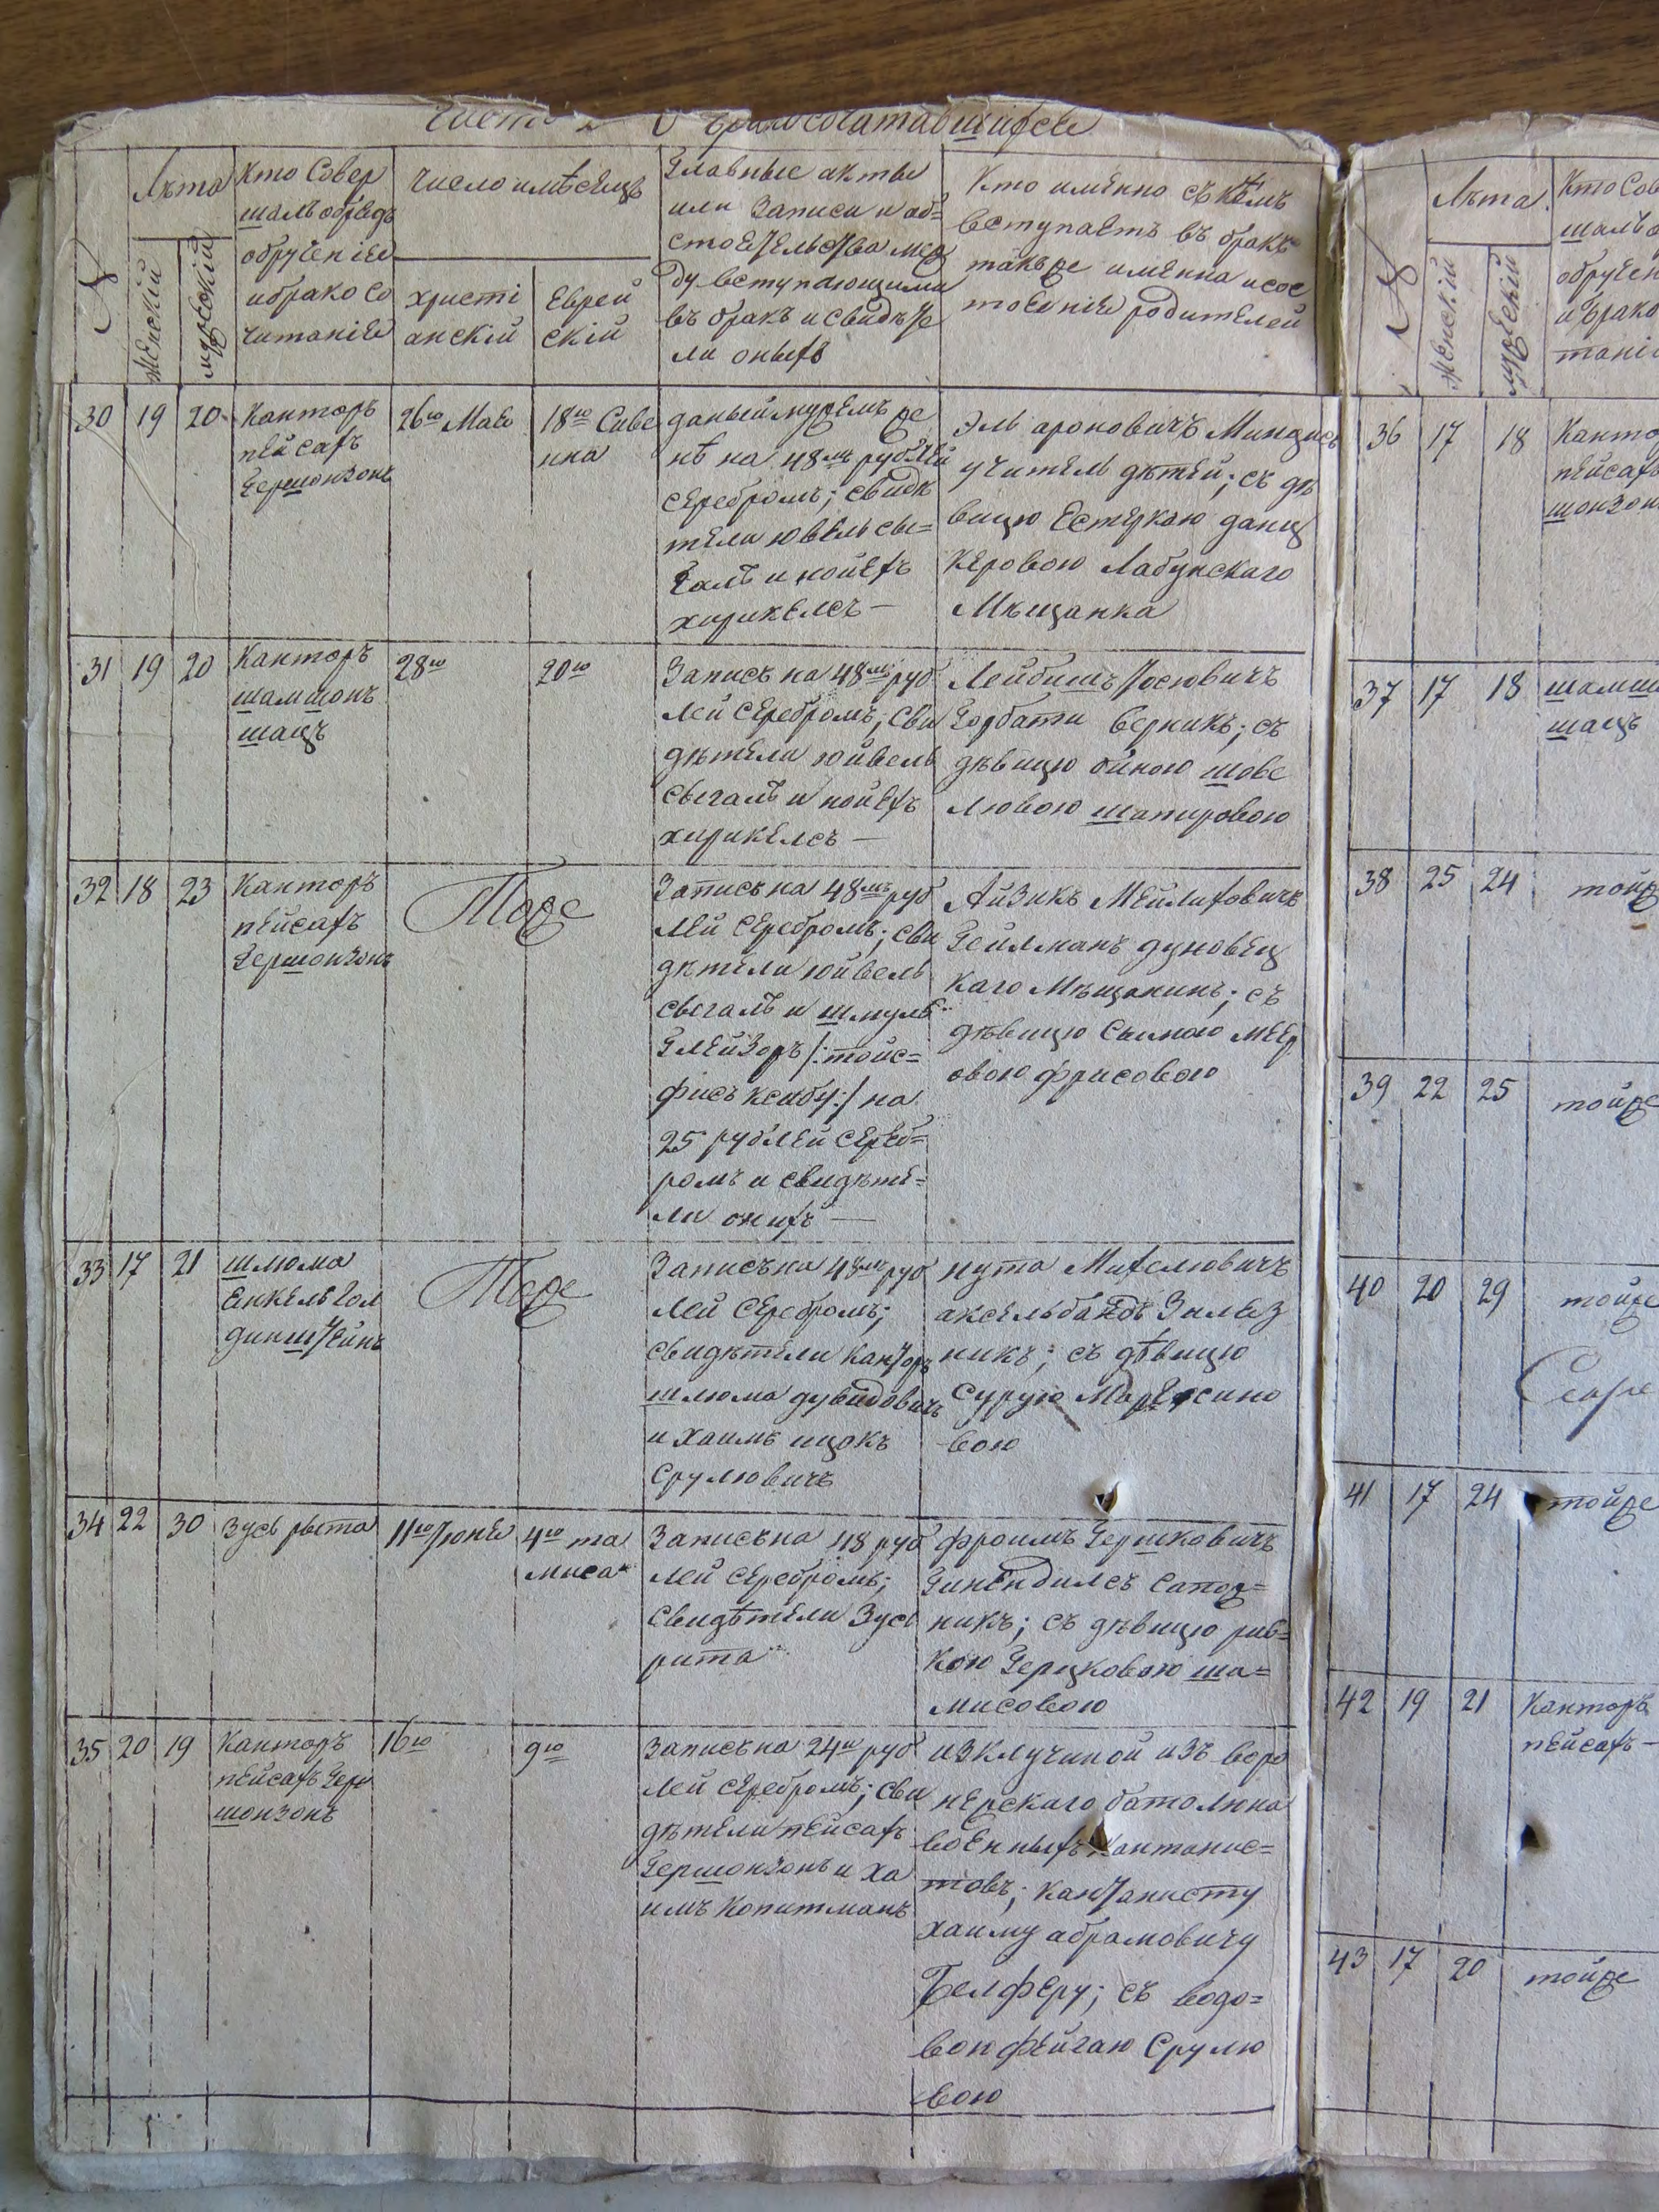 О бракосочатавшихся
№
Лѣта
женскій
мужескій
Кто Совер
шалъ обрядъ
обрученіе
и брако со
читаніе
число и мѣсецъ
христі
анскій
Еврей
скій
Главные акты
или Записи и об=
стоятельства меж
ду вступающими
въ бракъ и свидѣте
ли оныхъ
Кто именно съ кѣмъ
вступаетъ въ бракъ
такъже именна и сос
тоеніе родителей
30
19
20
Канторъ
пейсахъ
Гершонзонъ
26го Мая
18го Сиве
нна
даный мужемъ же
нѣ на 48мъ рублей
серебромъ; свидѣ
тели ювель сы=
галъ и нойехъ
хирикелсъ —
Эль ароновичъ Миндись
учитель дѣтей; съ дѣ
вицю Естеркаю данц
керовою Лабунскаго
Мѣщанка
31
19
20
Канторъ
шамшонъ
шацъ
28го
20го
Записъ на 48мъ руб
лей серебромъ; сви
дѣтели юйвель
сыгалъ и нойехъ
хирикелсъ —
Лейбишъ Іосювичъ
Горбати верникъ; съ
дѣвицю ойною шове
лювою шапировою
32
18
23
Канторъ
пейсахъ
Гершонзонъ
Тоже
Записъ на 48мъ руб
лей серебромъ; сви
дѣтели юйвель
сыгалъ и шмуль
Глейзоръ /: тойс=
фисъ ксибу :/ на
25 рублей сереб=
ромъ и свидѣте=
ли онихъ —
Айзикъ Мейлиховичъ
Гейлманъ дуновец
каго Мѣщанинъ; съ
дѣвицю Сымою меер
овою фрисовою
33
17
21
шлюма
Енкель Гол
динштейнъ
Тоже
Записъ на 48мъ руб
лей серебромъ;
свидѣтели канторъ
шлюма дувидовичъ
и хаимъ ицокъ
Срулювичъ
нута Михелювичъ
аксельбандъ
никъ; съ дѣвицю
Сурую
вою
34
22
30
Зусь рыта
11го Іюня
4го та
миса
Записъ на 48 руб
лей серебромъ;
свидѣтели Зусь
рита
фроимъ Гершковичъ
Гинендилсъ Сапож=
никъ; съ дѣвицю рив=
кою Герцковою ша=
мисовою
35
20
19
Канторъ
пейсахъ Гер
шонзонъ
16го
9го
Записъ на 24ъ руб
лей серебромъ; сви
дѣтели пейсахъ
Гершонзонъ и ха
имъ Копитманъ
изключиной изъ воро
нежскаго баталиона
военныхъ кантонис=
товъ; кантонисту
хаиму абрамовичу
Белферу; съ водо=
вои фейгаю Срулю
вою
№
Лѣта
женскій
мужескій
Кто Сов
шалъ о
обручен
и брако
таніе
36
17
18
Канто
пейсахъ
шонзон
37
17
18
шамш
шацъ
38
25
24
тойже
39
22
25
тойже
40
20
29
тойже
41
17
24
тойже
42
19
21
Канторъ
пейсахъ —
43
17
20
тойже